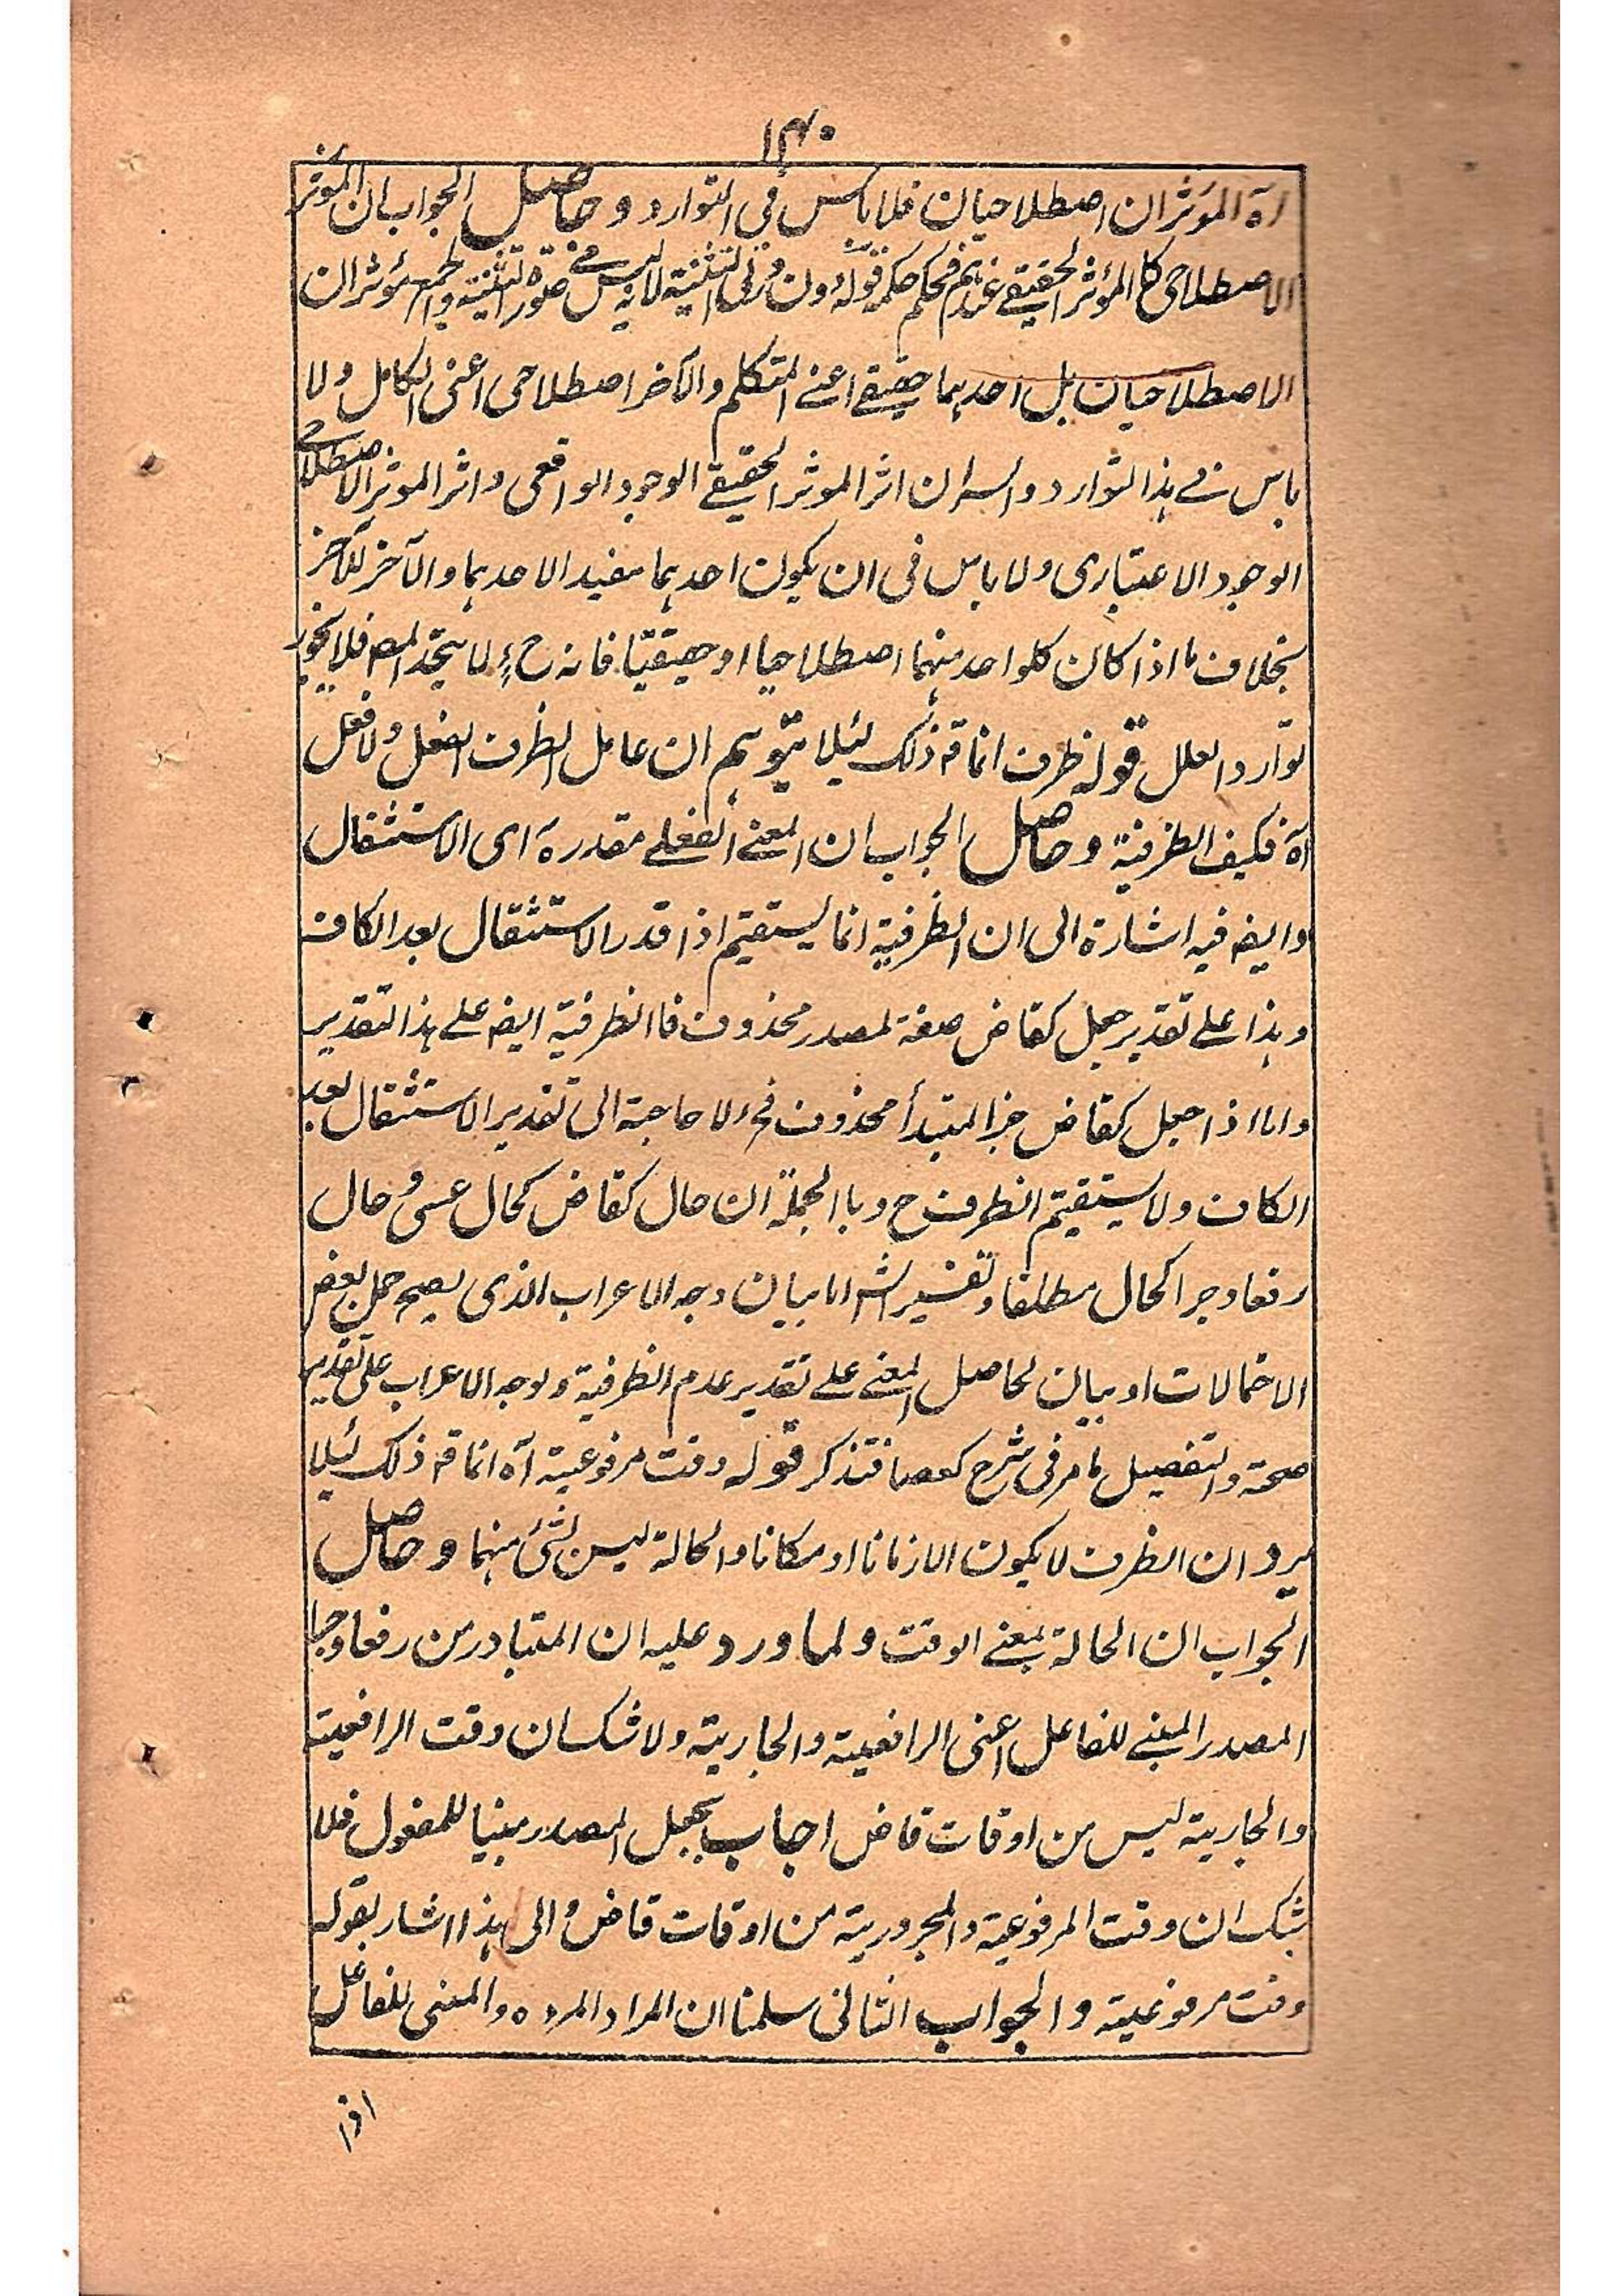 ۱۴۰
اه المؤثران اصطلاحيان فلا باس فى التوارد وحاصل الجواب ان المؤثر
الاصطلاحى كالمؤثر الحقيقے عندهم فحكمه حكمه قوله ونون فى التثنية لانه ليس فے صورة التثنية والجمع مؤثران
الاصطلاحيان بل احدهما حقيقے اعنے المتكلم والآخر اصطلاحى اعنى الكامل ولا
باس فے هذا التوارد والسر ان اثر الموثر الحقيقے الوجود الواقعى واثر الموثر الاصطلاحے
الوجود الاعتبارى ولا باس فى ان يكون احدهما مفيدا لاحدهما والآخر للآخر
بخلاف ما اذا كان كلواحد منهما اصطلاحيا او حقيقيا فانه ح لما يتحد المص فلا يجوز
توارد العلل قوله ظرف انما قه ذلك لئيلا يتوهم ان عامل الظرف الفعل ولا فعل
آه فكيف الظرفية وحاصل الجواب ان المعنے الفعلے مقدرة اى الاستثقال
وايضه فيه اشارة الى ان الظرفية انما يستقيم اذا قدر الاستثقال بعد الكاف
وهذا علے تقدير جعل كقاض صفة لمصدر محذوف فاالظرفية ايضه علے هذا التقدير
واما اذا جعل كقاض خبرا لمبتدأ محذوف فح لا حاجة الى تقدير الاستثقال بعد
الكاف ولا يستقيم الظرف ح وباالجملة ان حال كقاض كحال عسى و حال
رفعا وجرا كحال مطلقا وتفسير الش اما بيان وجه الاعراب الذى يصح حمل بعض
الاحتمالات او بيان لحاصل المعنے علے تقدير عدم الظرفية ولوجه الاعراب على تقدير
صحة والتفصيل ما مر فى شرح كعصا فتذكر قوله وقت مرفوعية آه انما قه ذلك لئيلا
يرد ان الظرف لا يكون الا زمانا او مكانا والحالة ليس لشئ منهما وحاصل
الجواب ان الحالة بمعنے الوقت ولما ورد عليه ان المتبادر من رفعا وجرا
المصدر المبنے للفاعل اعنى الرافعية والجارية ولا شك ان وقت الرافعية
والجارية ليس من اوقات قاض اجاب بجعل المصدر مبنيا للمفعول فلا
شك ان وقت المرفوعية والمجرورية من اوقات قاض والى هذا اشار بقوله
وقت مرفوعية والجواب الثانى سلمنا ان المراد المرده والمبنى للفاعل